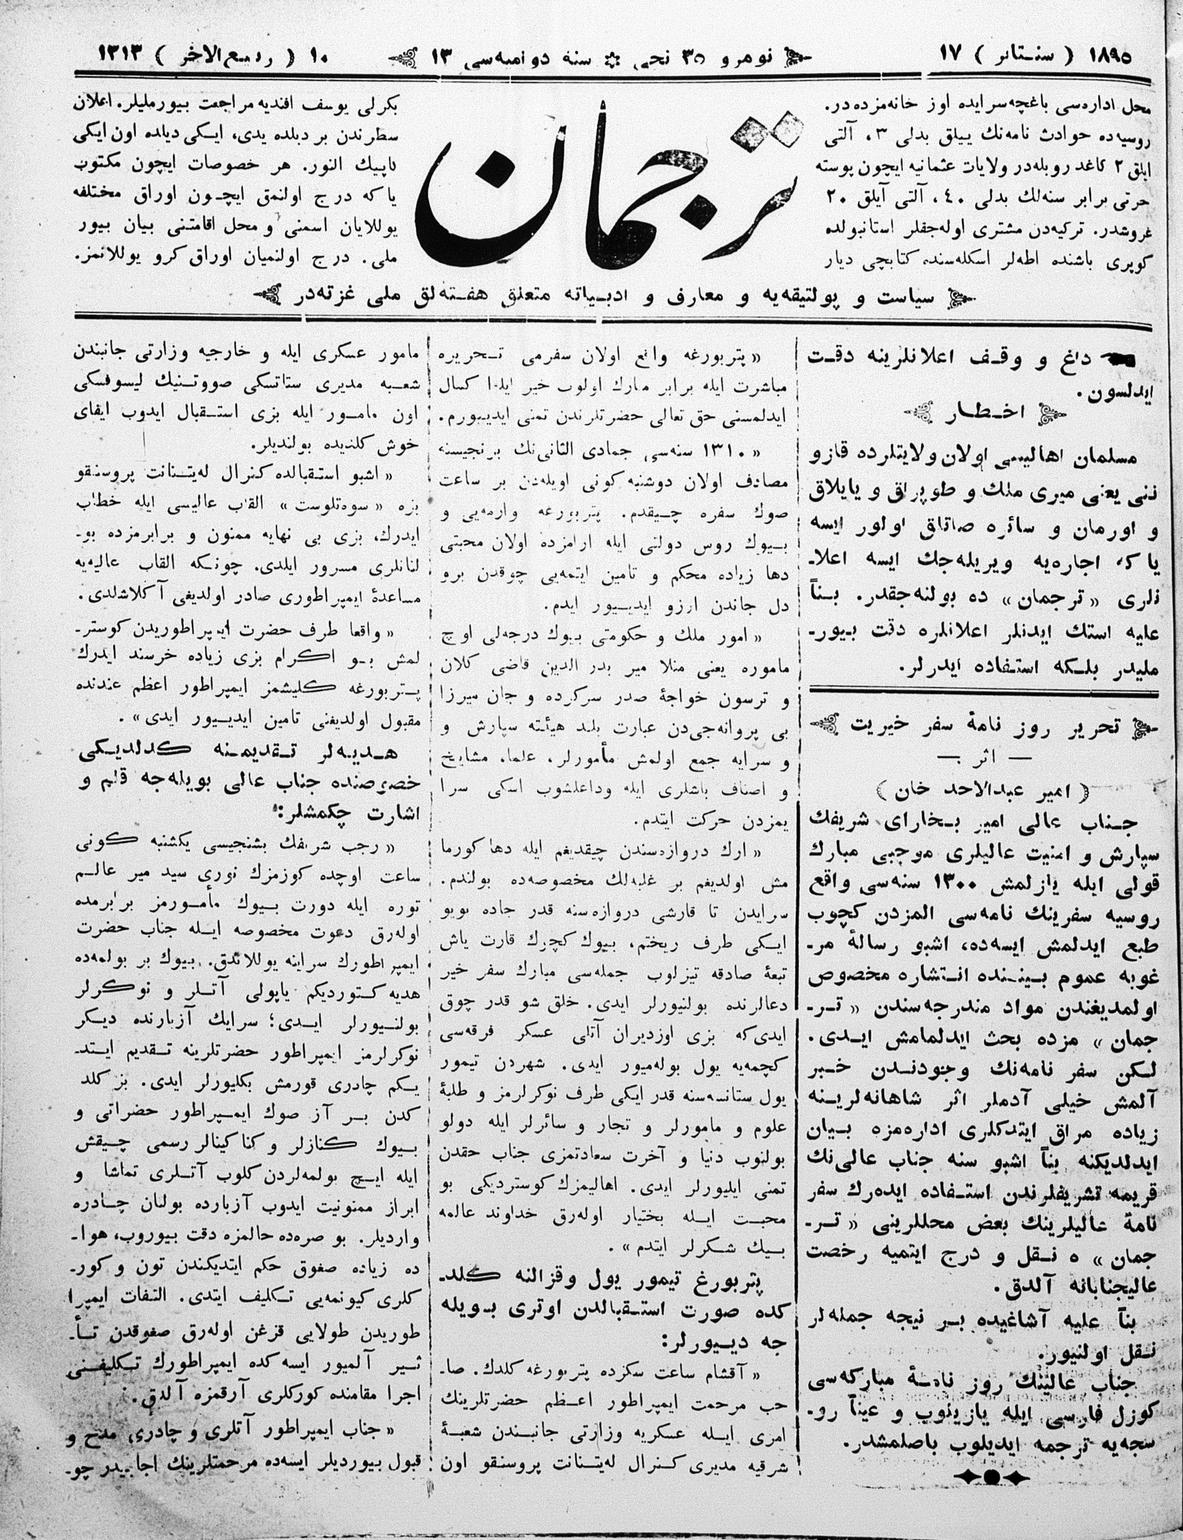 ١٨٩٥ ( سنتابر ) ١٧
نومرو ٣٥ نحی ✲ سنه دوامیه‌سی ١٣
١٠ ( ربیع الاخر ) ١٣١٣
محل اداره‌سی باغچه‌سرایده اوز خانه‌مزده‌در.
روسیه‌ده حوادث نامه‌نك ییلق بدلی ٣، آلتی
ایلق ٢ كاغد روبله‌در ولایات عثمانیه ایچون پوسته
خرتی برابر سنه‌لك بدلی ٤٠، آلتی آیلق ٢٠
غروشدر. تركیه‌دن مشتری اوله‌جقلر استانبولده
كوپری باشنده اطه‌لر اسكله‌سنده كتابچی دیار
ترجمان
بكرلی یوسف افندیه مراجعت بیورملیلر. اعلان
سطرندن بر دیلده یدی، ایكی دیلده اون ایكی
كاپیك النور. هر خصوصات ایچون مكتوب
یا كه درج اولنمق ایچون اوراق مختلفه
یوللایان اسمنی و محل اقامتنی بیان بیور
ملی. درج اولنمیان اوراق كرو یوللانمز.
سیاست و پولتیقه‌یه و معارف و ادبیاته متعلق هفته‌لق ملی غزته‌در
داغ و وقف اعلانلرینه دقت
ایدلسون.
اخطار
مسلمان اهالیسی اولان ولایتلرده قازو
ننی یعنی میری ملك و طوپراق و یایلاق
و اورمان و سائره صاتلق اولور ایسه
یا كه اجاره‌یه ویریله‌جك ایسه اعلا-
نلری « ترجمان » ده بولنه‌جقدر. بناً
علیه استك ایدنلر اعلانلره دقت بیور-
ملیدر بلكه استفاده ایدرلر.
تحریر روز نامهٔ سفر خیریت
— اثر —
( امیر عبدالاحد خان )
جناب عالی امیر بخارای شریفك
سپارش و امنیت عالیلری موجبی مبارك
قولی ایله یازلمش ١٣٠٠ سنه‌سی واقع
روسیه سفرینك نامه‌سی المزدن كچوب
طبع ایدلمش ایسه‌ده، اشبو رسالهٔ مر-
غوبه عموم بیننده انتشاره مخصوص
اولمدیغندن مواد مندرجه‌سندن « تر-
جمان » مزده بحث ایدلمامش ایدی.
لكن سفر نامه‌نك وجودندن خبر
آلمش خیلی آدملر اثر شاهانه‌لرینه
زیاده مراق ایتدكلری اداره‌مزه بیان
ایدلدیكنه بناً اشبو سنه جناب عالی‌نك
قریمه تشریفلرندن استفاده ایده‌رك سفر
نامهٔ عالیلرینك بعض محللرینی « تر-
جمان » ه نقل و درج ایتمیه رخصت
عالیجنابانه آلدق.
بناً علیه آشاغیده بر نیجه جمله‌لر
نقل اولنیور.
جناب عالینك روز نامهٔ مباركه‌سی
كوزل فارسی ایله یازیلوب و عیناً رو-
سجه‌یه ترجمه ایدیلوب باصلمشدر.
« پتربورغه واقع اولان سفرمی تحریره
مباشرت ایله برابر مبارك اولوب خیر ایله اكمال
ایدلمسنی حق تعالی حضرتلرندن تمنی ایدییورم.
« ١٣١٠ سنه‌سی جمادی الثانی‌نك برنجیسنه
مصادف اولان دوشنبه كونی اویله‌دن بر ساعت
صوك سفره چیقدم. پتربورغه وارمه‌یی و
بیوك روس دولتی ایله ارامزده اولان محبتی
دها زیاده محكم و تامین ایتمه‌یی چوقدن برو
دل جاندن ارزو ایدییور ایدم.
« امور ملك و حكومتی بیوك درجه‌لی اوچ
ماموره یعنی منلا میر بدر الدین قاضی كلان
و ترسون خواجهٔ صدر سركرده و جان میرزا
بی پروانه‌جی‌دن عبارت بلند هیئته سپارش و
و سرایه جمع اولمش مأمورلر، علما، مشایخ
و اصناف باشلری ایله وداعلشوب اسكی سرا
یمزدن حركت ایتدم.
« ارك دروازه‌سندن چیقدیغم ایله دها كورما
مش اولدیغم بر غلبه‌لك مخصوصه‌ده بولندم.
سرایدن تا قارشی دروازه‌سنه قدر جاده بویو
ایكی طرف ریختم، بیوك كچوك قارت یاش
تبعهٔ صادقه تیزلوب جمله‌سی مبارك سفر خیر
دعالرنده بولنیورلر ایدی. خلق شو قدر چوق
ایدی‌كه بزی اوزدیران آتلی عسكر فرقه‌سی
كچمه‌یه یول بوله‌میور ایدی. شهردن تیمور
یول ستانسه‌سنه قدر ایكی طرف نوكرلرمز و طلبهٔ
علوم و مامورلر و تجار و سائرلر ایله دولو
بولنوب دنیا و آخرت سعادتمزی جناب حقدن
تمنی ایلیورلر ایدی. اهالیمزك كوستردیكی بو
محبت ایله بختیار اوله‌رق خداوند عالمه
بیك شكرلر ایتدم ».
پتربورغ تیمور یول وقزالنه كلد-
كده صورت استقبالدن اوتری بویله
جه دییورلر:
« آقشام ساعت سكزده پتربورغه كلدك. صا-
حب مرحمت ایمپراطور اعظم حضرتلرینك
امری ایله عسكریه وزارتی جانبندن شعبهٔ
شرقیه مدیری كنرال له‌یتنانت پروسنقو اون
مامور عسكری ایله و خارجیه وزارتی جانبندن
شعبه مدیری ستاتسكی صووتنیك لیسوفسكی
اون مامور ایله بزی استقبال ایدوب ایفای
خوش كلدیده بولندیلر.
« اشبو استقبالده كنرال له‌یتنانت پروسنقو
بزه « سوه‌تلوست » القاب عالیسی ایله خطاب
ایدرك، بزی بی نهایه ممنون و برابرمزده بو-
لنانلری مسرور ایلدی. چونكه القاب عالیه‌یه
مساعدهٔ ایمپراطوری صادر اولدیغی آكلاشلدی.
« واقعا طرف حضرت ایمپراطوریدن كوستر-
لمش بو اكرام بزی زیاده خرسند ایدرك
پتربورغه كلیشمز ایمپراطور اعظم عندنده
مقبول اولدیغنی تامین ایدییور ایدی ».
هدیه‌لر تقدیمنه كلدیكی
خصوصنده جناب عالی بویله‌جه قلم و
اشارت چكمشلر:
« رجب شریفك بشنجیسی یكشنبه كونی
ساعت اوچده كوزمزك نوری سید میر عالم
توره ایله دورت بیوك مأمورمز برابرمده
اوله‌رق دعوت مخصوصه ایله جناب حضرت
ایمپراطورك سراینه یوللاندق. بیوك بر بولمه‌ده
هدیه كتوردیكم یاپولی آتلر و نوكرلر
بولنیورلر ایدی؛ سرایك آزبارنده دیكر
نوكرلرمز ایمپراطور حضرتلرینه تقدیم ایتد-
یكم چادری قورمش بكلیورلر ایدی. بز كلد
كدن بر آز صوك ایمپراطور حضراتی و
بیوك كنازلر و كناكینالر رسمی چیقش
ایله ایچ بولمه‌لردن كلوب آتلری تماشا و
ابراز ممنونیت ایدوب آزبارده بولنان چادره
واردیلر. بو صره‌ده حالمزه دقت بیوروب، هوا-
ده زیاده صغوق حكم ایتدیكندن تون و كور-
كلری كیونمه‌یی تكلیف ایتدی. التفات ایمپرا
طوریدن طولایی قزغن اوله‌رق صغوقدن تأ-
ثیر آلمیور ایسه‌كده ایمپراطورك تكلیفنی
اجرا مقامنده كوركلری آرقمزه آلدق.
« جناب ایمپراطور آتلری و چادری مدح و
قبول بیوردیلر ایسه‌ده مرحمتلرینك